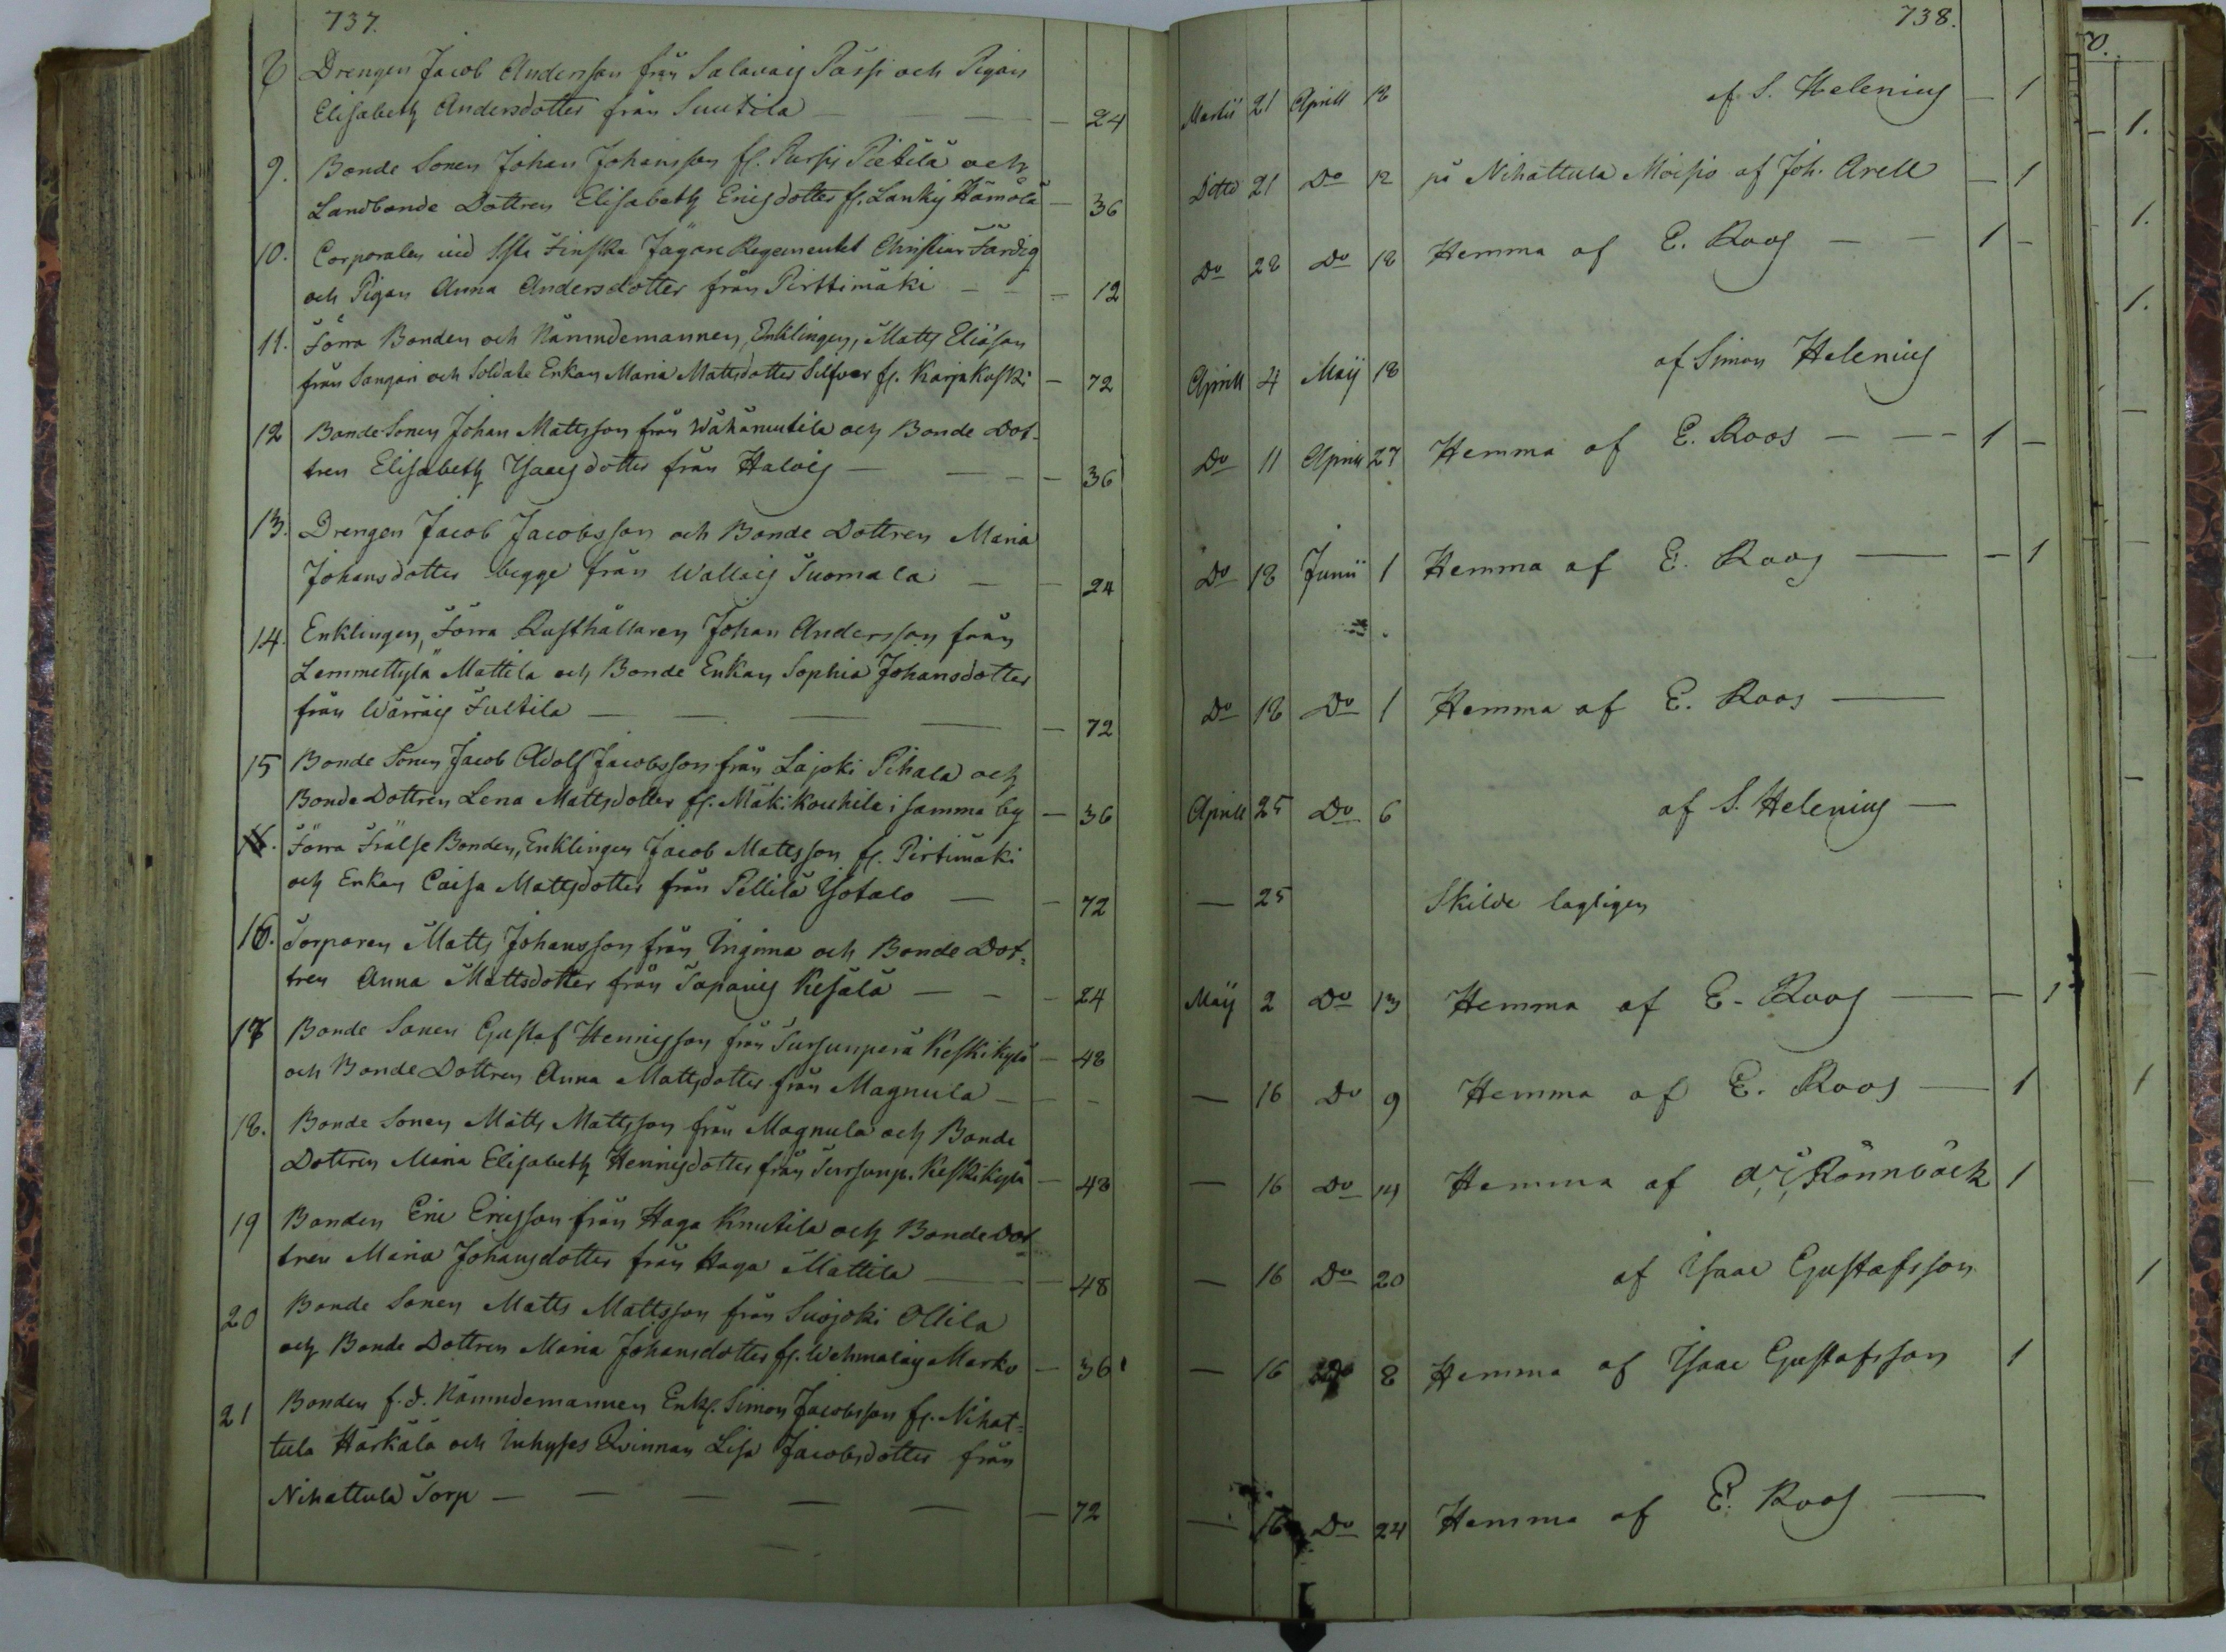 737.
8 Drengen Jacob Andersson från Salavais Passi och Pigan
Elisabeth Andersdotter från Suutila — — — 24
9. Bonde Sonen Johan Johansson fr. Pursi Pietilä och
Landbonde Dottren Elisabeth Ericsdotter fr. Lankij Hämölä — 36
10. Corporalen vid 1sta Finska Jägare Regementet Christian Färdig
och Pigan Anna Andersdotter från Pirttimäki — — — 12
11. Förra Bonden och Nämndemannen, Enklingen, Matts Eliasson
från Sangari och Soldate Enkan Maria Mattsdotter Silfver fr. Karjakoski — 72
12 Bonde Sonen Johan Mattsson från Wähämutila och Bonde Dot-
tren Elisabeth Isaacsdotter från Halois — — — — 36
13. Drengen Jacob Jacobsson och Bonde Dottren Maria
Johansdotter begge från Wallais Tuomala — — 24
14. Enklingen, Förra Rusthållaren Johan Andersson från
Lemmettylä Mattila och Bonde Enkan Sophia Johansdotter
från Wärräis Fultila — — — — — 72
15 Bonde Sonen Jacob Adolf Jacobsson från Lajoki Pihala och
Bonde Dottren Lena Mattsdotter fr. Mäki Kouhila i samma by — 36
16. Förra Frälse Bonden, Enklingen Jacob Mattsson fr. Pirtimäki
och Enkan Caisa Mattsdotter från Pellilä Isotalo — — 72
16. Torparen Matts Johansson från Inginna och Bonde Dot=
tren Anna Mattsdotter från Tapanis Kesälä — — — 24
17 Bonde Sonen Gustaf Hennisson från Sursunperä Keskikylä — 48
och Bonde Dottren Anna Mattsdotter från Magnula — — —
18. Bonde Sonen Matts Mattsson från Magnula och Bonde
Dottren Maria Elisabeth Hennisdotter från Sursunp. Keskikylä — 48
19 Bonden Eric Ericsson från Haga Knutila och Bonde Dot=
tren Maria Johansdotter från Haga Mattila — — 48
20 Bonde Sonen Matts Mattsson från Suojoki Ollila
och Bonde Dottren Maria Johansdotter fr. Wehmalais Marko — 36
21 Bonden f.d. Nämndemannen Enkl. Simon Jacobsson fr. Nihat=
tula Härkälä och Inhyses Qvinnan Lisa Jacobsdotter från
Nihattula Torp — — — — — — 72
738.
Martii 21 Aprill 18 af S. Helenius — 1
Ditto 21 Do 12 på Nihattula Moisio af Joh. Arell — 1
Do 28 Do 18 Hemma af E. Roos — — 1 —
Aprill 4 Maij 18 af Simon Helenius
Do 11 Aprill 27 Hemma af E. Roos — — — 1 —
Do 18 Junii 1 Hemma af E. Roos — — 1
Do 18 Do 1 Hemma af E. Roos —
Aprill 25 Do 6 af S. Helenius —
— 25 Skilde lagligen
Maij 2 Do 13 Hemma af E. Roos — — 1
— 16 Do 9 Hemma af E. Roos — 1
— 16 Do 14 Hemma af Rönnbäck 1
— 16 Do 20 af Isaac Gustafsson
— 16 Do 8 Hemma af Isaac Gustafsson 1
— 16 Do 24 Hemma af E. Roos —